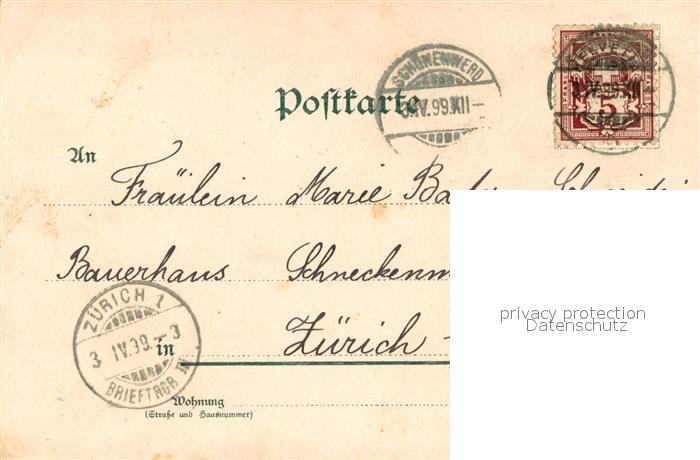 SCHÖNENWERD
3.IV.99.XII–
HELVETIA
3.IV.99.XII–
5
Postkarte
An
Fräulein Marie
Bauerhaus
ZÜRICH 1
3 IV.99.–3
in Zürich
Wohnung
(Straße und Hausnummer)
privacy protection
Datenschutz